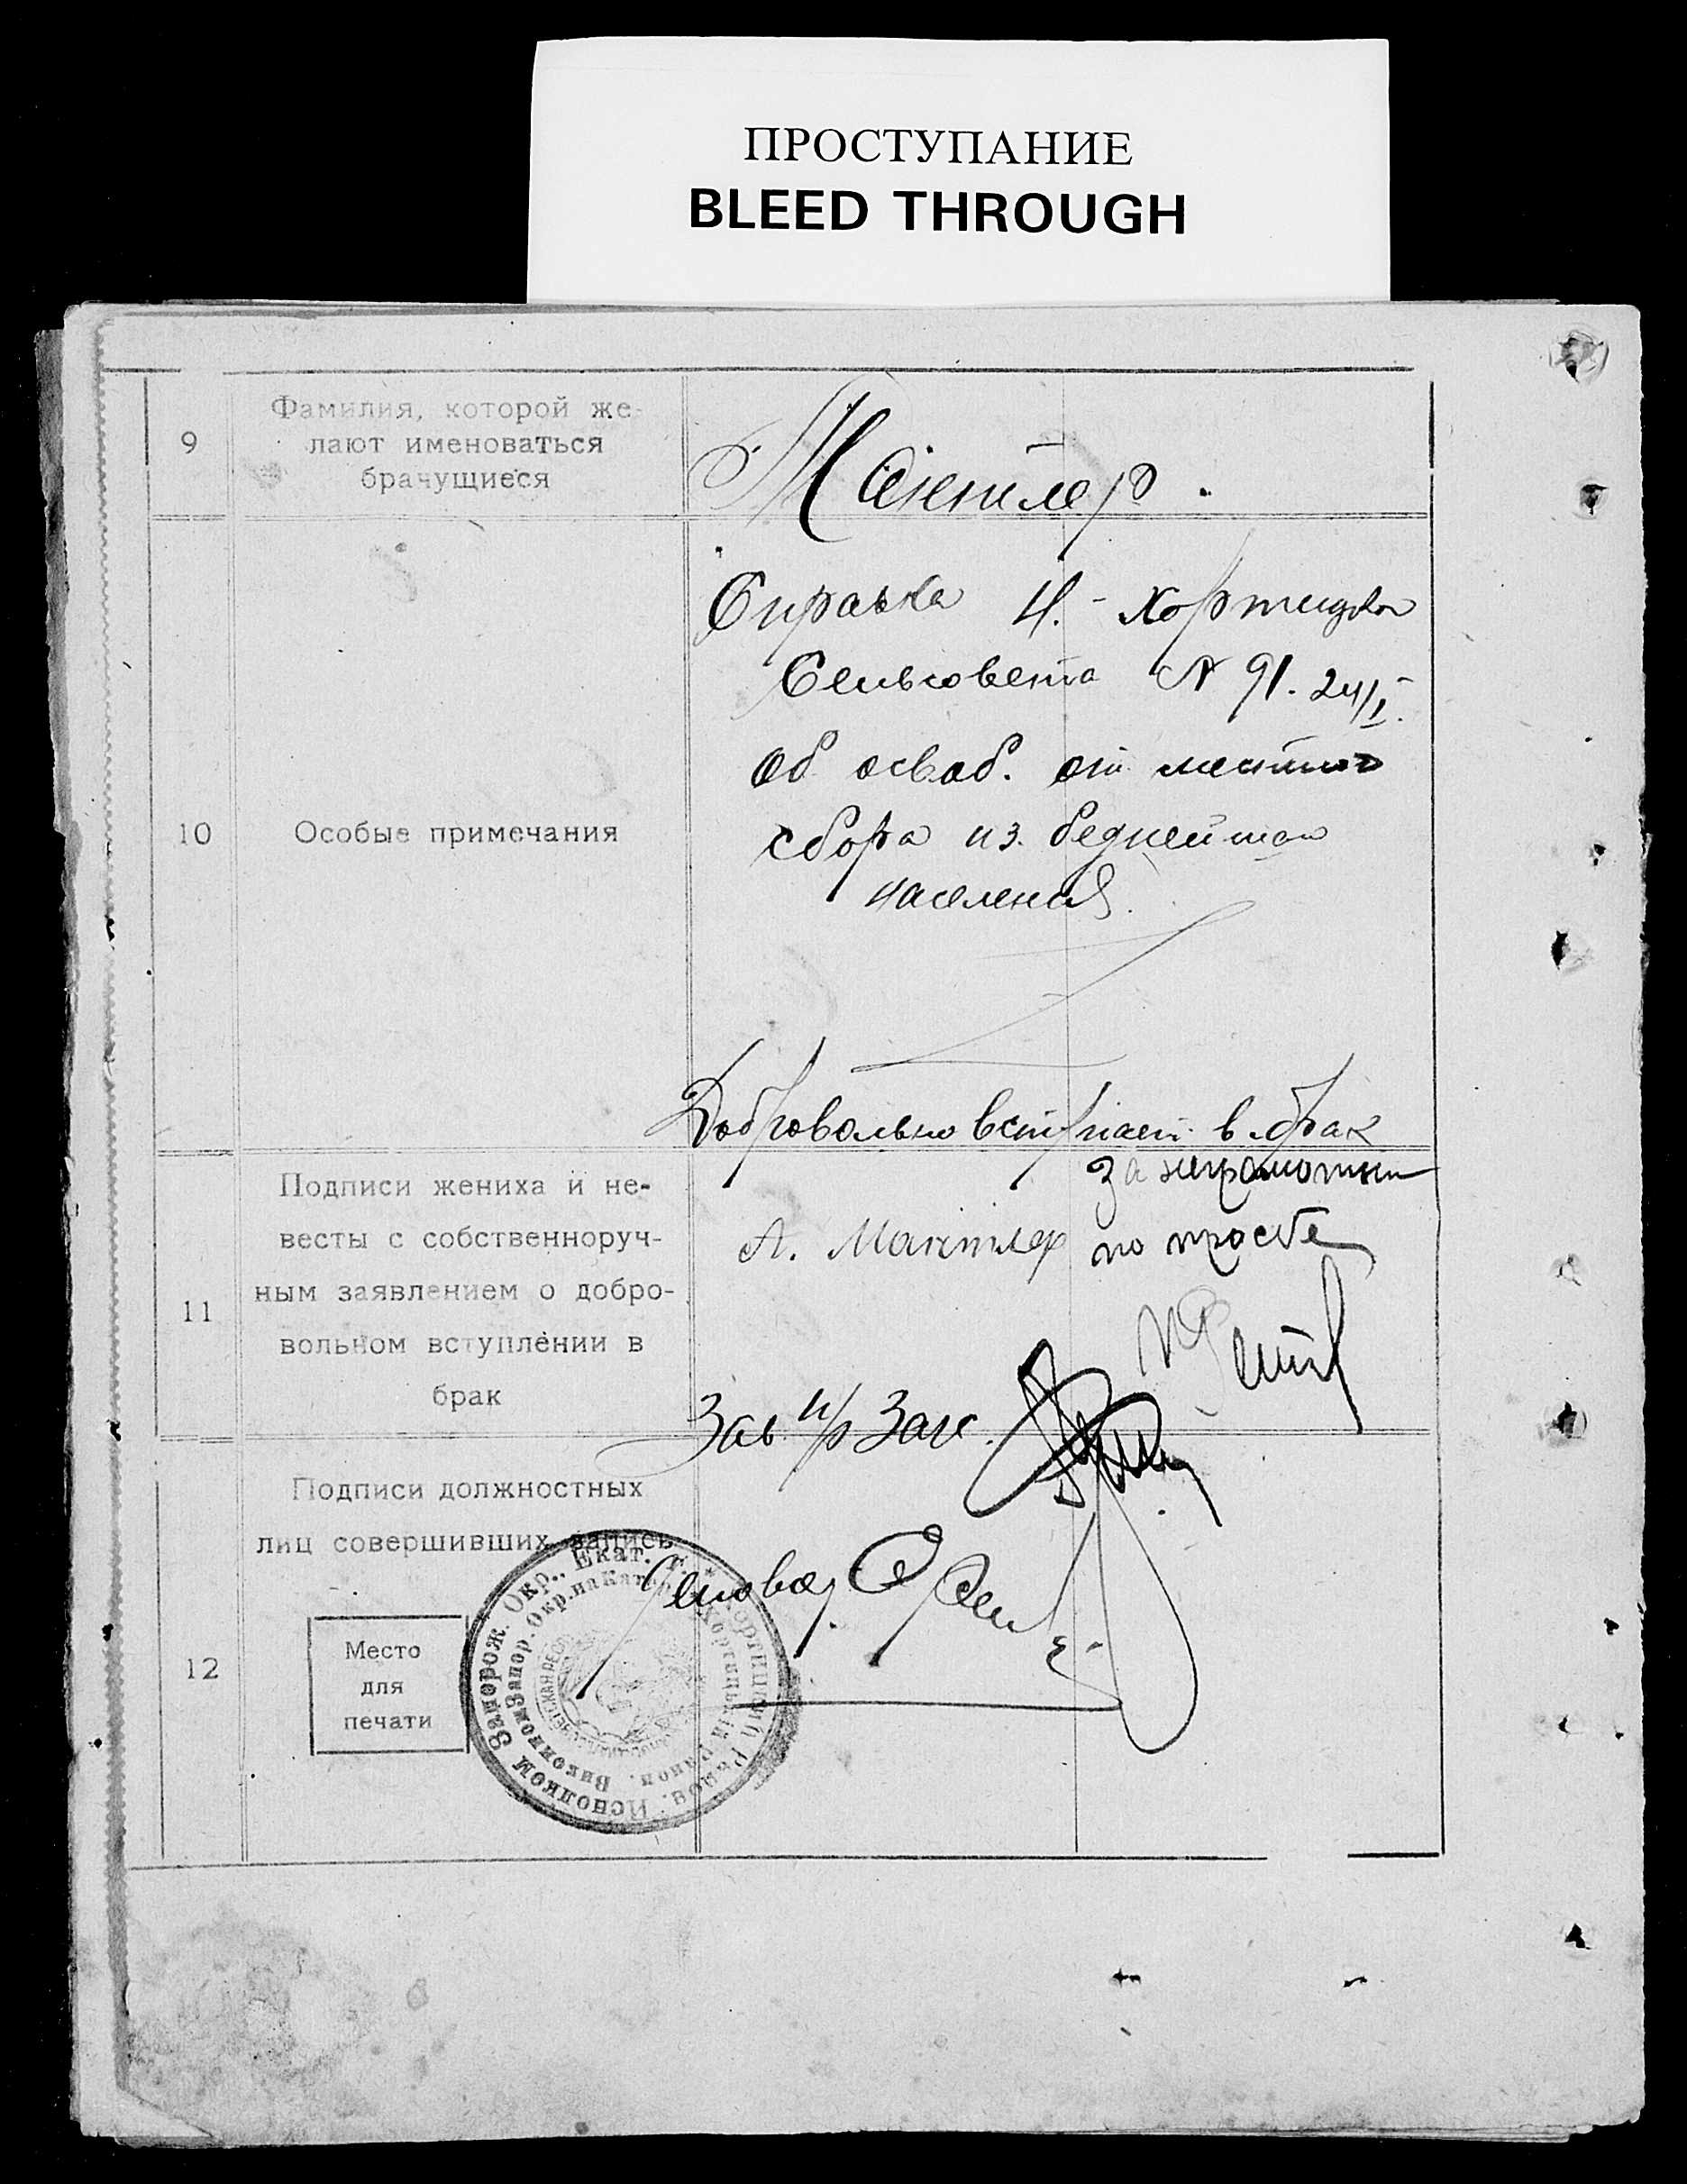 ПРОСТУПАНИЕ
BLEED THROUGH
9
Фамилия, которой же-
лают именоваться
брачущиеся
Мантлер.
10
Особые примечания
Справка Н.-Хортицкого
Сельсовета № 91. 24/I.
Об освоб. от местного
сбора из беднейшего
населения.
Добровольно вступает в брак
11
Подписи жениха и не-
весты с собственноруч-
ным заявлением о добро-
вольном вступлении в
брак
А. Мантлер
за неграмотн
по просбе
Зав п/р Загс.
12
Подписи должностных
лиц совершивших запись
Место
для
печати
Деловод.
Исполком Запорож. Окр., Екат. Г.
Виконком Запор. Окр. на Кат.
Хортицький Район.